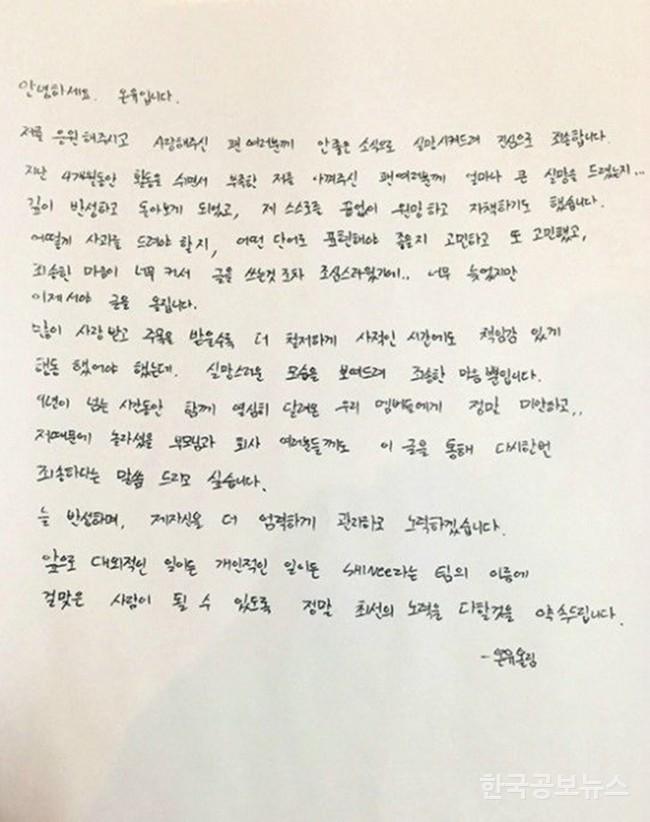 안녕하세요. 온유입니다.
저를 응원해주시고 사랑해주신 팬여러분께 안좋은 소식으로 실망시켜드려 진심으로 죄송합니다.
지난 4개월동안 활동을 쉬면서 부족한 저를 아껴주신 팬여러분께 얼마나 큰 실망을 드렸는지...
깊이 반성하고 돌아보게 되었고, 제 스스로를 끝없이 원망하고 자책하기도 했습니다.
어떻게 사과를 드려야 할지, 어떤 단어로 표현해야 좋을지 고민하고 또 고민했고,
죄송한 마음이 너무 커서 글을 쓰는것 조차 조심스러웠기에.. 너무 늦었지만
이제서야 글을 올립니다.
많이 사랑받고 주목을 받을수록 더 철저하게 사적인 시간에도 책임감 있게
행동 했어야 했는데. 실망스러운 모습을 보여드려 죄송한 마음뿐입니다.
9년이 넘는 시간동안 함께 열심히 달려온 우리 멤버들에게 정말 미안하고,,
저때문에 놀라셨을 부모님과 회사 여러분들께도 이 글을 통해 다시한번
죄송하다는 말씀 드리고 싶습니다.
늘 반성하며, 제자신을 더 엄격하게 관리하고 노력하겠습니다.
앞으로 대외적인 일이든 개인적인 일이든 SHINee라는 팀의 이름에
걸맞은 사람이 될 수 있도록 정말 최선의 노력을 다할것을 약속드립니다.
-온유올림
한국공보뉴스